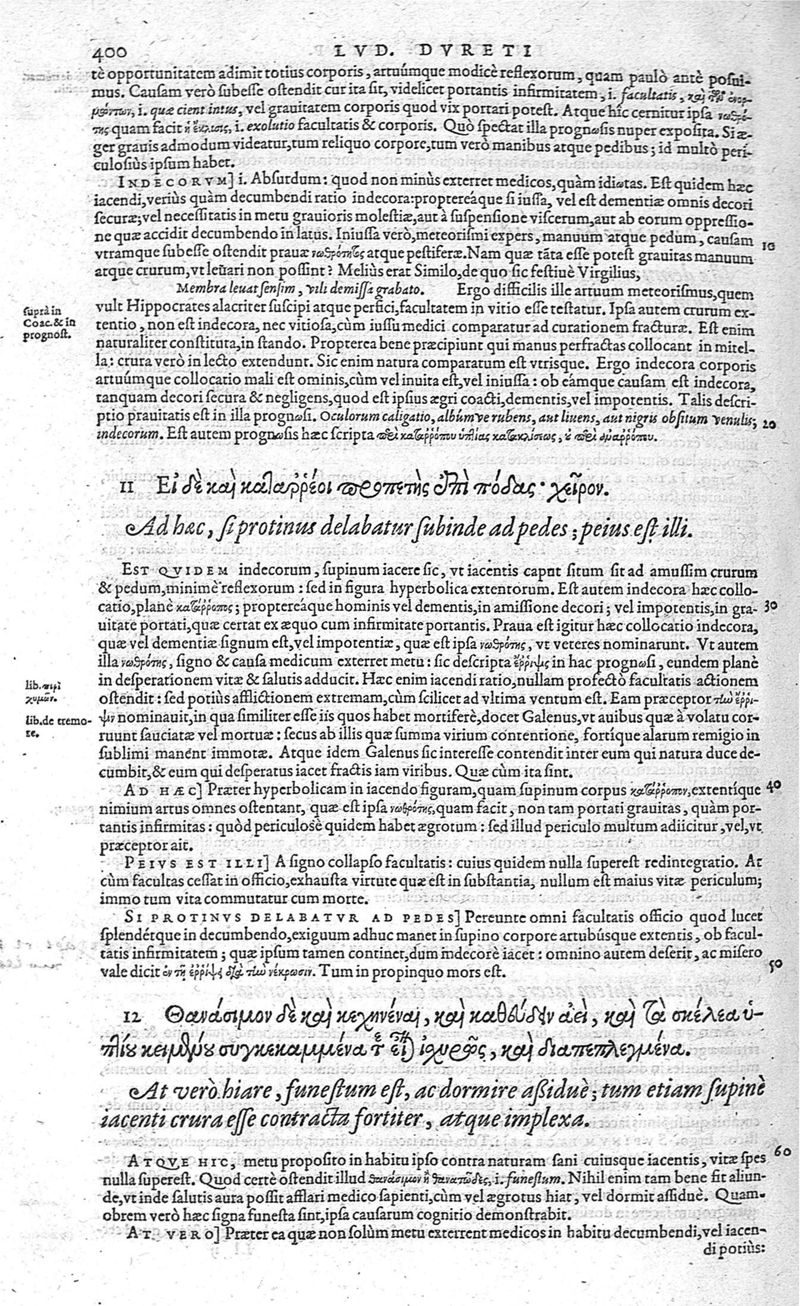 400 LVD. DVRETI
tè opportunitatem adimit totius corporis, artuúmque modicè reflexorum, quam paulò antè posui-
mus. Causam verò subesse ostendit cur ita sit, videlicet portantis infirmitatem, i. facultatis, καὶ τῶν
i. quæ cient intus, vel grauitatem corporis quod vix portari potest. Atque hîc cernitur ipsa νωθρό-
της quam facit ἢ ἔκλυσις, i. exolutio facultatis & corporis. Quò spectat illa prognωsis nuper exposita. Si æ-
ger grauis admodum videatur, tum reliquo corpore, tum verò manibus atque pedibus; id multò peri-
culosiùs ipsum habet.
INDECORVM] i. Absurdum: quod non minùs exterret medicos, quàm idiωtas. Est quidem hæc
iacendi, veriùs quàm decumbendi ratio indecora: proptereáque si iussa, vel est dementiæ omnis decori
securæ; vel necessitatis in metu grauioris molestiæ, aut à suspensione viscerum, aut ab eorum oppressio-
ne quæ accidit decumbendo in latus. Iniussa verò, meteorismi expers, manuum atque pedum, causam 10
vtramque subesse ostendit prauæ νωθρότητος atque pestiferæ. Nam quæ tāta esse potest grauitas manuum
atque crurum, vt leuari non possint? Meliùs erat Similo, de quo sic festiuè Virgilius,
Membra leuat sensim, vili demissa grabato. Ergo difficilis ille artuum meteorismus, quem
suprà in
Coac. & in
prognost.
vult Hippocrates alacriter suscipi atque perfici, facultatem in vitio esse testatur. Ipsa autem crurum ex-
tentio, non est indecora, nec vitiosa, cùm iussu medici comparatur ad curationem fracturæ. Est enim
naturaliter constituta, in stando. Propterea bene præcipiunt qui manus perfractas collocant in mitel-
la: crura verò in lecto extendunt. Sic enim natura comparatum est vtrisque. Ergo indecora corporis
artuúmque collocatio mali est ominis, cùm vel inuita est, vel iniussa: ob eámque causam est indecora,
tanquam decori secura & negligens, quod est ipsius ægri coacti, dementis, vel impotentis. Talis descri-
ptio prauitatis est in illa prognωsi. Oculorum caligatio, albúmve rubens, aut liuens, aut nigris obsitum venulis; 20
indecorum. Est autem prognωsis hæc scripta περὶ καταῤῥόπου ὑπτίας κατακλίσεως, οὐ περὶ ὁμοῤῥόπου.
11 Εἰ δὲ καὶ καταῤῥέοι προπετὴς ἐπὶ πόδας· χεῖρον.
Ad hæc, si protinus delabatur subinde ad pedes; peius est illi.
EST QVIDEM indecorum, supinum iacere sic, vt iacentis caput situm sit ad amussim crurum
& pedum, minimè reflexorum: sed in figura hyperbolica extentorum. Est autem indecora hæc collo-
catio, planè κατάῤῥοπος; proptereáque hominis vel dementis, in amissione decori; vel impotentis, in gra- 30
uitate portati, quæ certat ex æquo cum infirmitate portantis. Praua est igitur hæc collocatio indecora,
quæ vel dementiæ signum est, vel impotentiæ, quæ est ipsa νωθρότης, vt veteres nominarunt. Vt autem
illa νωθρότης, signo & causa medicum exterret metu: sic descripta ἔῤῥιψις in hac prognωsi, eundem planè
lib. περὶ
χυμῶν.
in desperationem vitæ & salutis adducit. Hæc enim iacendi ratio, nullam profectò facultatis actionem
ostendit: sed potiùs afflictionem extremam, cùm scilicet ad vltima ventum est. Eam præceptor τὴν ἔῤῥι-
lib. de tremo-
re.
ψιν nominauit, in qua similiter esse iis quos habet mortiferè, docet Galenus, vt auibus quæ à volatu cor-
ruunt sauciatæ vel mortuæ: secus ab illis quæ summa virium contentione, fortíque alarum remigio in
sublimi manent immotæ. Atque idem Galenus sic interesse contendit inter eum qui natura duce de-
cumbit, & eum qui desperatus iacet fractis iam viribus. Quæ cùm ita sint.
AD HÆC] Præter hyperbolicam in iacendo figuram, quam supinum corpus κατάῤῥοπον, extentíque 40
nimium artus omnes ostentant, quæ est ipsa νωθρότης, quam facit, non tam portati grauitas, quàm por-
tantis infirmitas: quòd periculosè quidem habet ægrotum: sed illud periculo multum adiicitur, vel, vt
præceptor ait.
PEIVS EST ILLI] A signo collapso facultatis: cuius quidem nulla superest redintegratio. At
cùm facultas cessat in officio, exhausta virtute quæ est in substantia, nullum est maius vitæ periculum;
immo tum vita commutatur cum morte.
SI PROTINVS DELABATVR AD PEDES] Pereunte omni facultatis officio quod lucet
splendétque in decumbendo, exiguum adhuc manet in supino corpore artubúsque extentis, ob facul-
tatis infirmitatem; quæ ipsum tamen continet, dum indecorè iacet: omnino autem deserit, ac misero
vale dicit ἐν τῇ ἐῤῥίψει διὰ τὴν νέκρωσιν. Tum in propinquo mors est. 50
12 Θανάσιμον δὲ καὶ κεχηνέναι, καὶ καθεύδειν ἀεὶ, καὶ τὰ σκέλεα ὑ-
πτίου κειμένου συγκεκαμμένα εἶναι ἰσχυρῶς, καὶ διαπεπλεγμένα.
At verò hiare, funestum est, ac dormire assiduè; tum etiam supinè
iacenti crura esse contracta fortiter, atque implexa.
ATQVE HIC, metu proposito in habitu ipso contra naturam sani cuiusque iacentis, vitæ spes 60
nulla superest. Quod certè ostendit illud θανάσιμον ἢ θανατῶδες, i. funestum. Nihil enim tam bene fit aliun-
de, vt inde salutis aura possit afflari medico sapienti, cùm vel ægrotus hiat, vel dormit assiduè. Quam-
obrem verò hæc signa funesta sint, ipsa causarum cognitio demonstrabit.
AT VERO] Præter ea quæ non solùm metu exterrent medicos in habitu decumbendi, vel iacen-
di potiùs: